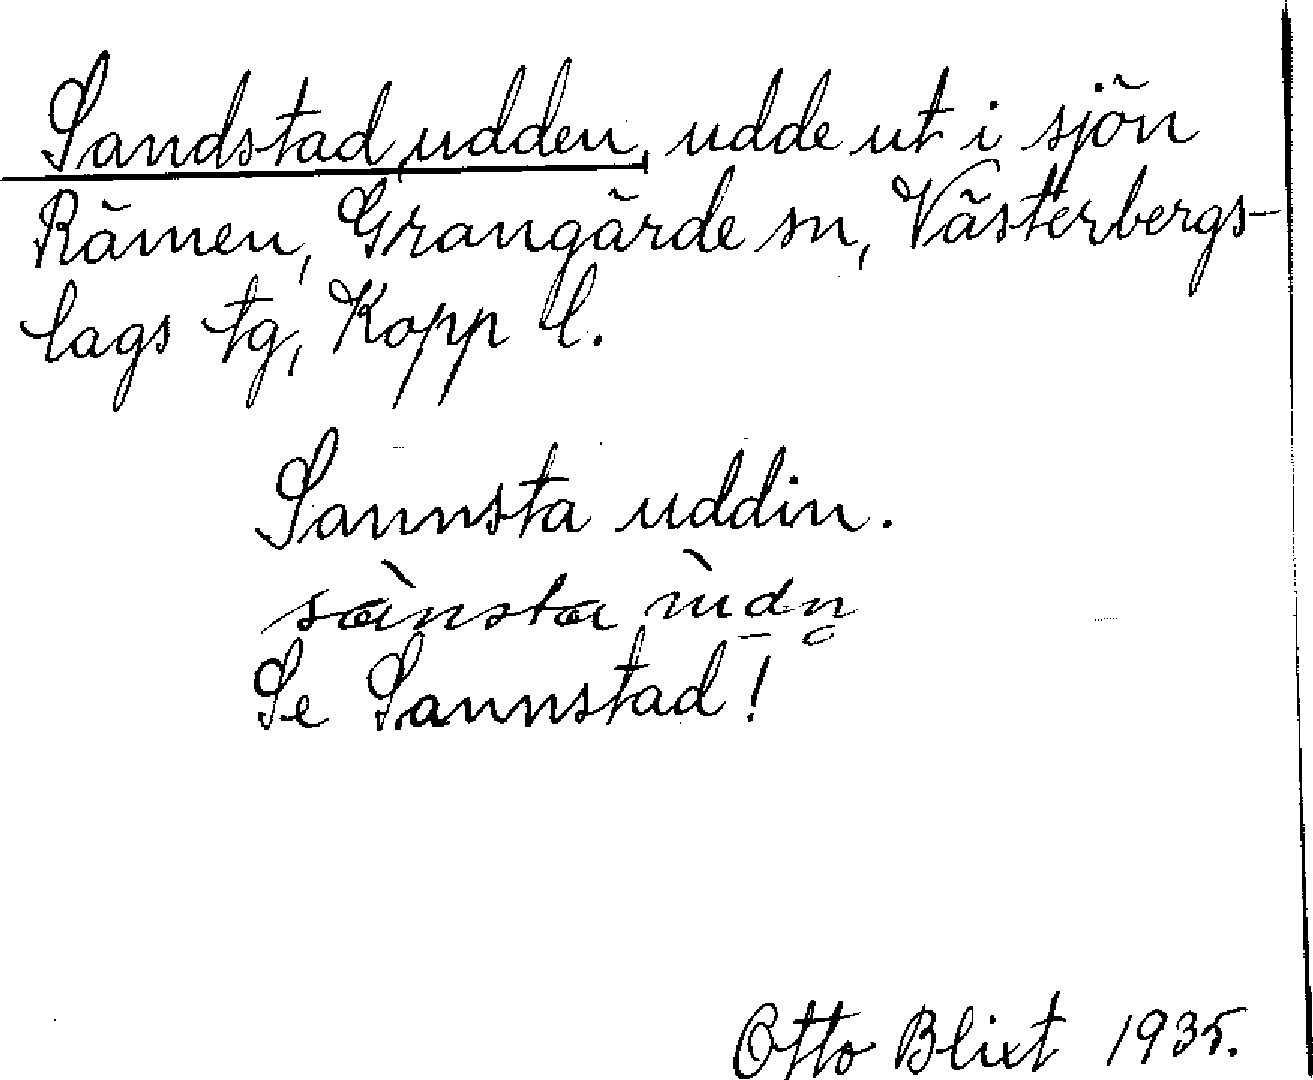 Sandstad udden, udde ut i sjön
Rämen, Grangärde sn, Västerbergs-
lags tg, Kopp l.
Sannsta uddin.
sànsta ùdn̥
Se Sannstad!
Otto Blixt 1935.